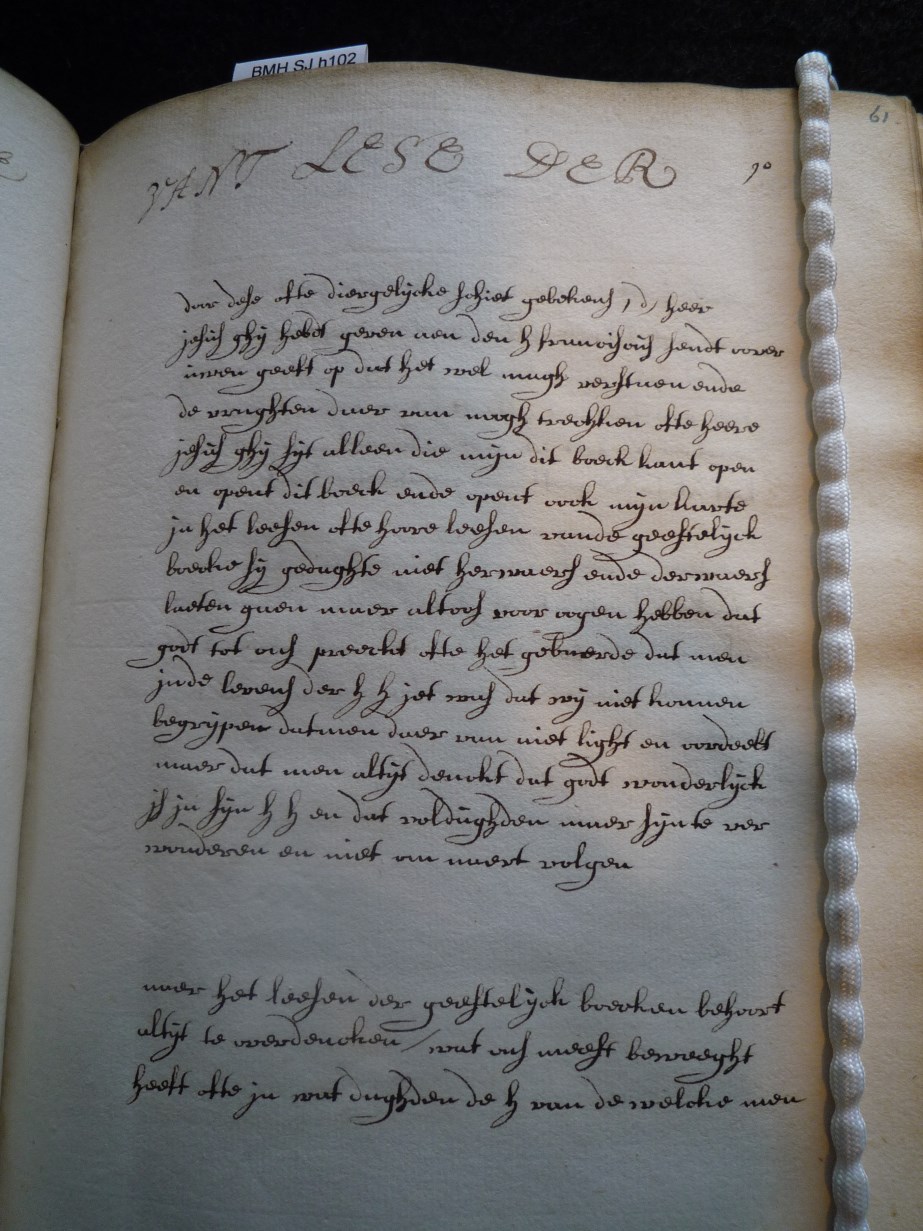 BMH SJ h102
61.
VANT LESE DER 90
door dese ofte diergelycke schiet gebekens, d, heer
jesus ghy hebt geven aen den h franciscus sendt over
uwen geest op dat het wel magh verstaen ende
de vrughten daer van magh trecken ofte heere
jesus ghy syt alleen die myn dit boeck kant open
en opent dit boeck ende opent oock myn harte
in het leesen ofte hoore leesen vande geestelyck
boecke sy gedaghte niet herwaers ende derwaers
laeten gaen maer altoos voor oogen hebben dat
godt tot ons preeckt ofte het gebuerde dat men
jnde levens der h h jet was dat wy niet konnen
begrypen datmen daer van niet light en oordeelt
maer dat men altyt denckt dat godt wonderlyck
js jn syn h h en dat die dughden maer syn te ver
wonderen en niet om naert volgen
naer het leesen der geestelyck boecken behoort
altyt te overdencken / wat ons meest beweeght
heeft ofte jn wat dughden de h van de welcke men